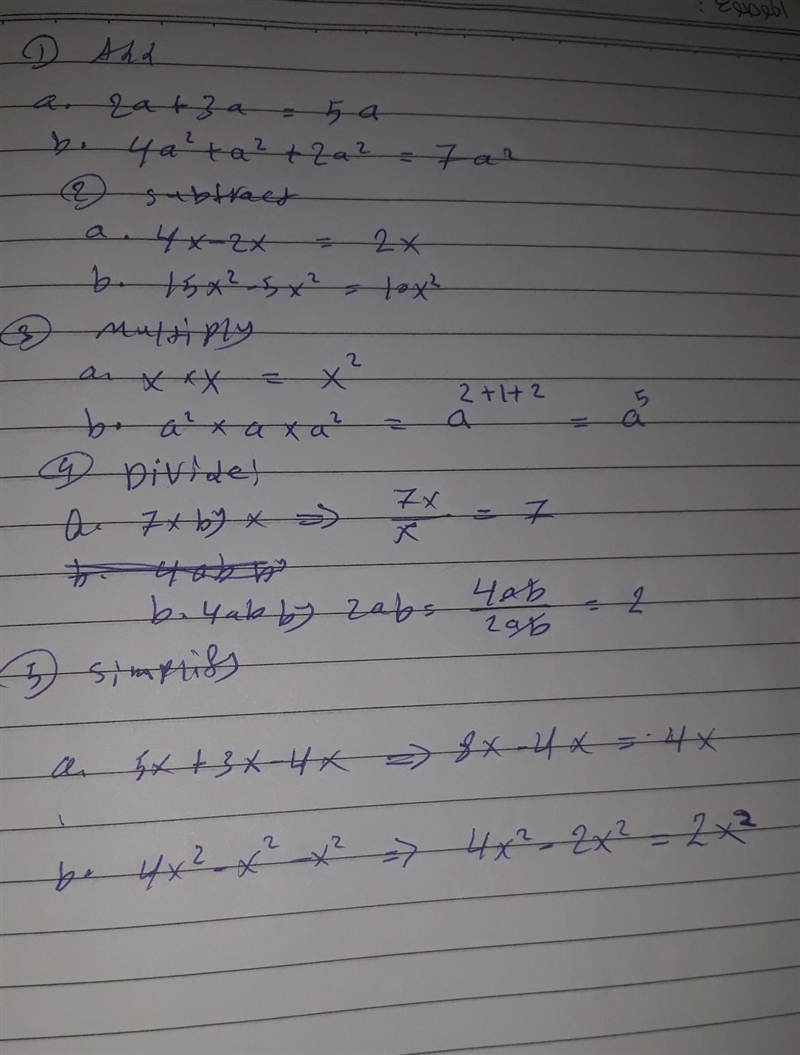 الموضوع :
① Add
a. 2a + 3a = 5a
b. 4a² + a² + 2a² = 7a²
② subtract
a. 4x - 2x = 2x
b. 15x² - 5x² = 10x²
③ Multiply
a. x × x = x²
b. a² × a × a² = a²⁺¹⁺² = a⁵
④ Divide;
a. 7x by x ⇒ 7x/x = 7
b. 4ab by
b. 4ab by 2ab = 4ab/2ab = 2
⑤ simplify
a. 5x + 3x - 4x ⇒ 8x - 4x = 4x
b. 4x² - x² - x² ⇒ 4x² - 2x² = 2x²